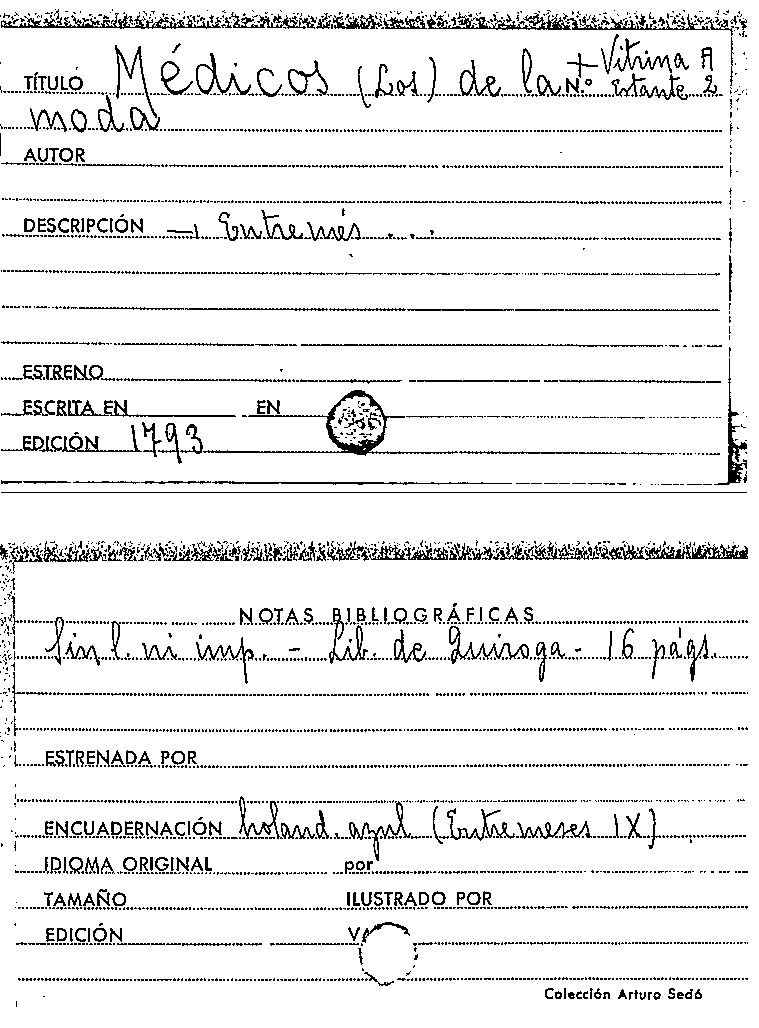 TÍTULO Médicos (Los) de la Nº + Vitrina A
Estante 2
moda
AUTOR
DESCRIPCIÓN — Entremés ...
ESTRENO
ESCRITA EN EN
EDICIÓN 1793
NOTAS BIBLIOGRÁFICAS
Sin l. ni imp. - Lib. de Quiroga - 16 págs.
ESTRENADA POR
ENCUADERNACIÓN holand. azul (Entremeses IX)
IDIOMA ORIGINAL por
TAMAÑO ILUSTRADO POR
EDICIÓN
Colección Arturo Sedó